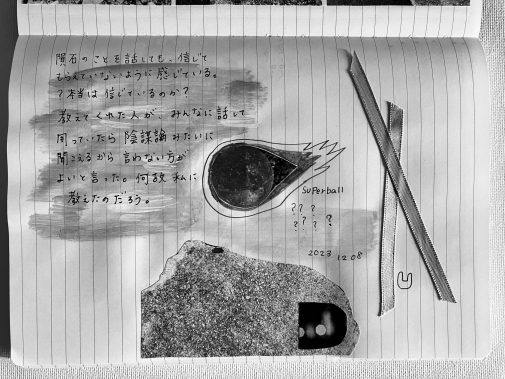 隕石のことを話しても、信じて
もらえていないように感じている。
？本当は信じているのか？
教えてくれた人が、みんなに話して
回っていたら陰謀論みたいに
聞こえるから言わない方が
よいと言った。何故私に
教えたのだろう。
Superball
? ? ?
? ? ? ?
2023 12 08